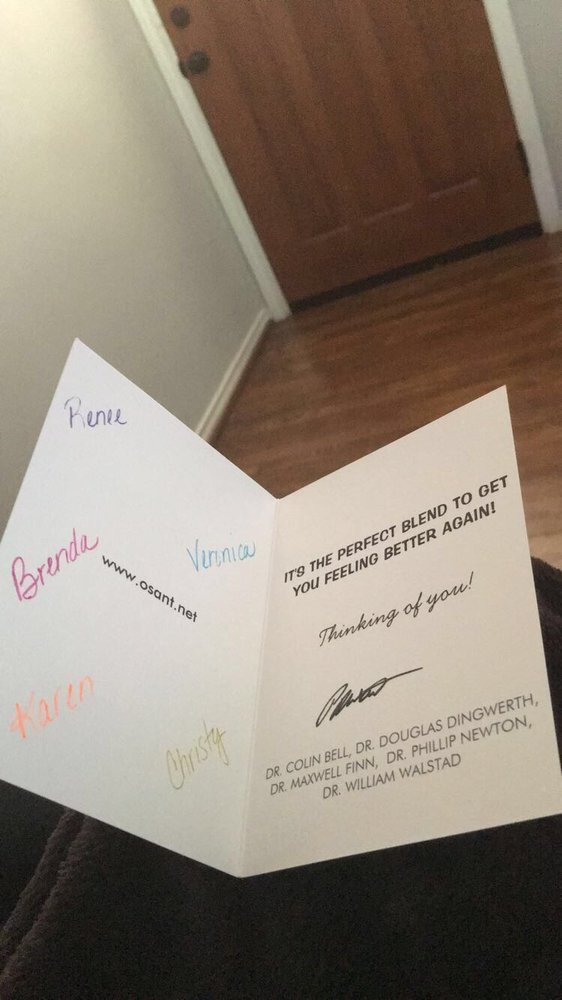 Renee
Brenda
Veronica
www.osant.net
Karen
Christy
IT'S THE PERFECT BLEND TO GET
YOU FEELING BETTER AGAIN!
Thinking of you!
DR. COLIN BELL, DR. DOUGLAS DINGWERTH,
DR. MAXWELL FINN, DR. PHILLIP NEWTON,
DR. WILLIAM WALSTAD